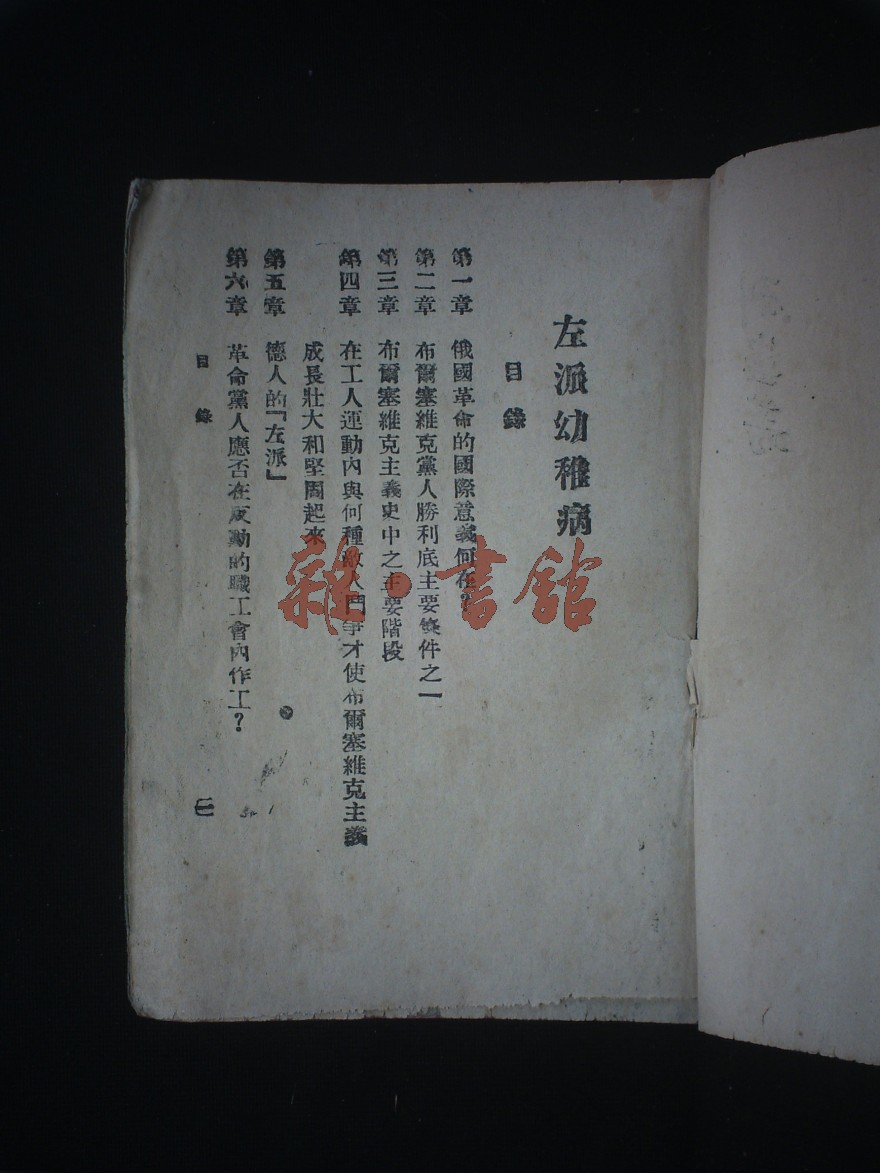 左派幼稚病
目錄
第一章 俄國革命的國際意義何在?
第二章 布爾塞維克黨人勝利底主要條件之一
第三章 布爾塞維克主義史中之主要階段
第四章 在工人運動內與何種敵人鬥爭才使布爾塞維克主義
成長壯大和堅固起來
第五章 德人的「左派」
第六章 革命黨人應否在反動的職工會內作工?
目錄
雜·書館